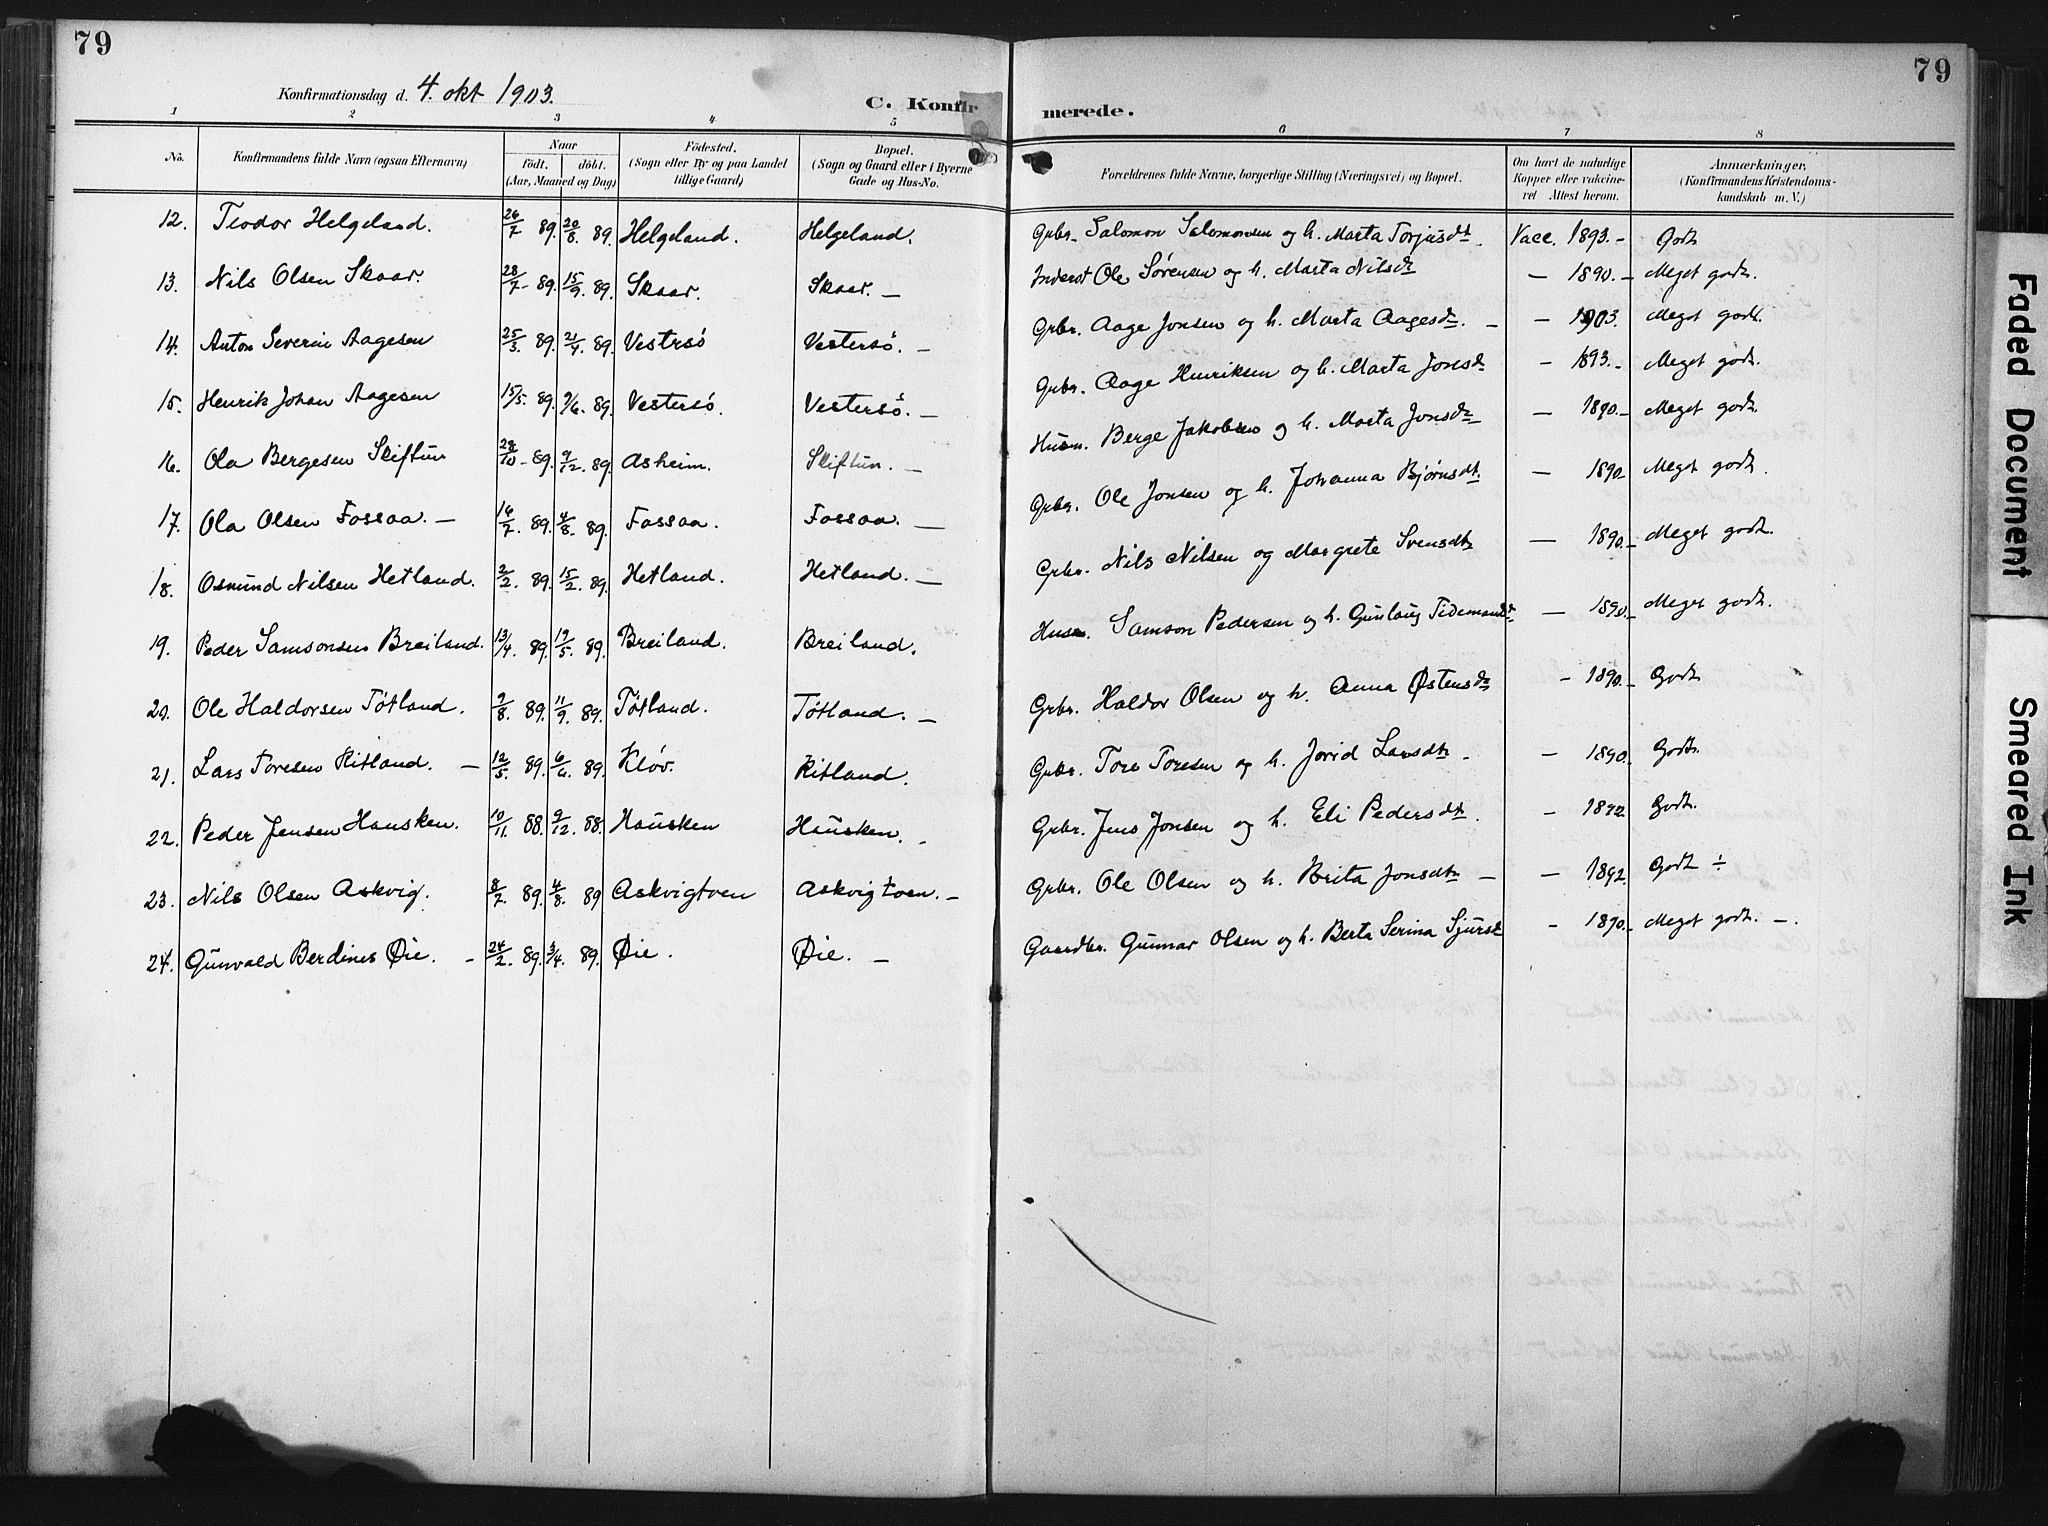 79
79
Konfirmationsdag d. 4. okt 1903.
C. Konfir merede.
1 2 3 4 5 6 7 8
No. Konfirmandens fulde Navn (ogsaa Efternavn) Naar födt. döbt. (Aar, Maaned og Dag) Födested. (Sogn eller By og paa Landet tillige Gaard) Bopæl. (Sogn og Gaard eller i Byerne Gade og Hus-No. Forældrenes fulde Navne, borgerlige Stilling (Næringsvei) og Bopæl. Om havt de naturlige Kopper eller vaccineret Attest herom. Anmærkninger, (Konfirmandens Kristendomskundskab m. V.)
12. Teodor Helgeland. 26/7 89. 20/8. 89. Helgeland. Helgeland. Grbr. Salomon Salomonsen og h. Marta Torjusdt. Vacc. 1893.- Godt
13. Nils Olsen Skaar. 28/7- 89. 15/9. 89. Skaar. Skaar. — Inderst Ole Sørensen og h. Marta Nilsdt — 1890.- Meget godt.
14. Anton Severin Aagesen 25/3. 89. 21/4. 89. Vestersö Vestersö. — Grbr. Aage Jonsen og h. Marta Aagesdt. — — 1903. Meget godt.
15. Henrik Johan Aagesen 15/5. 89. 9/6. 89. Vestersö. Vestersö. — Grbr. Aage Henriksen og h. Marta Jonsdt — 1893.- Meget godt.
16. Ola Bergesen Skiftun 28/10- 89. 9/12. 89. Asheim. Skiftun. — Husm. Berge Jakobsen og h. Marta Jonsdt — 1890- Meget godt.
17. Ola Olsen Fossaa. — 16/7. 89. 4/8. 89. Fossaa. Fossaa. — Grbr. Ole Jonsen og h. Johanna Bjørnsdt. — 1890- Meget godt.
18. Osmund Nilsen Hetland. 2/2. 89. 15/2. 89. Hetland. Hetland. — Grbr. Nils Nilsen og Margrete Svensdt — 1890.- Meget godt.
19. Peder Samsonsen Breiland. 13/4. 89. 19/5. 89. Breiland. Breiland. Husm. Samson Pedersen og h. Gunlaug Tidemandsdt — 1890.- Meget godt.
20. Ole Haldorsen Tøtland. 9/8. 89. 11/9. 89. Tøtland. Tøtland. — Grbr. Haldor Olsen og h. Anna Østensdt — 1890.- Godt
21. Lars Toresen Ritland. — 12/5. 89. 6/6. 89. Kløv. Ritland. Grbr. Tore Toresen og h. Jorid Larsdt. — 1890. Godt.
22. Peder Jensen Hausken. 10/11. 88. 9/12. 88. Hausken Hausken. - Grbr. Jens Jonsen og h. Eli Pedersdt. — 1892. Godt.
23. Nils Olsen Askvig. 8/7. 89. 4/8. 89 Askvigtven Askvigtven. — Grbr. Ole Olsen og h. Brita Jonsdt — — 1892. Godt ÷
24. Gunvald Berdines Øie. — 24/2. 89. 3/4. 89. Øie. Øie. — Gaardbr. Gunnar Olsen og h. Berta Serina Sjursdt - 1890.- Meget godt. —.
Faded Document
Smeared Ink